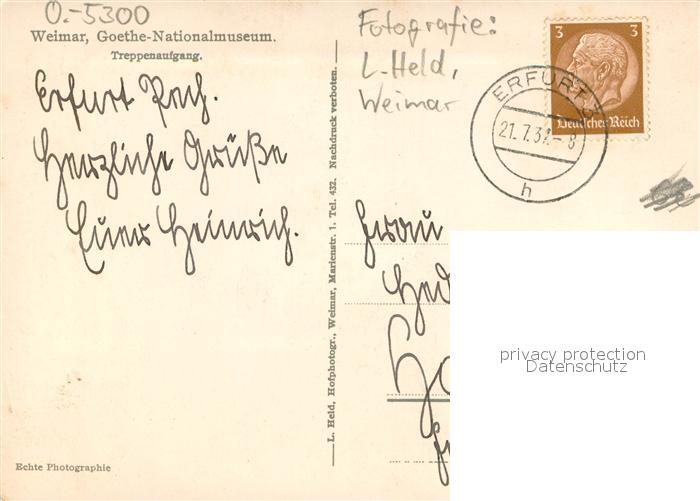 O.-5300
Weimar, Goethe-Nationalmuseum.
Treppenaufgang.
Erfurt
Herzliche Grüße
Euer Heinrich.
Echte Photographie
L. Held, Hofphotogr., Weimar, Marienstr. 1. Tel. 432. Nachdruck verboten.
Fotografie:
L. Held,
Weimar
3 3
Deutsches Reich
ERFURT 3
21.7.37.- 8
h
Frau
privacy protection
Datenschutz